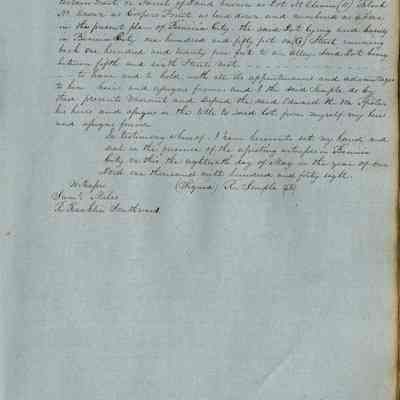 certain Tract or Parcel of Land known as Lot No Eleven (11) Block
No known as Coopers Front as laid down and numbered as above
in the present plan of Benicia City. the said Lot lying and being
in Benicia City one hundred and fifty feet on (K) Street running
back one hundred and twenty five feet to an alley. Said Lot being
between fifth and sixth Streets west
to have and to hold with all the appurtenances and advantages
to him heirs and assigns forever and I the said Semple do by
these presents Warrant and defend the said Edward H. Von
his heirs and assigns in the title to said lot from myself my heirs
and assigns forever
In testimony whereof I have hereunto set my hand and
seal in the presence of the attesting witnesses in Benicia
City on this the eighteenth day of May in the year of our
Lord one thousand eight hundred and forty eight.
Witness (Signed) R. Semple
Saml
L. Franklin